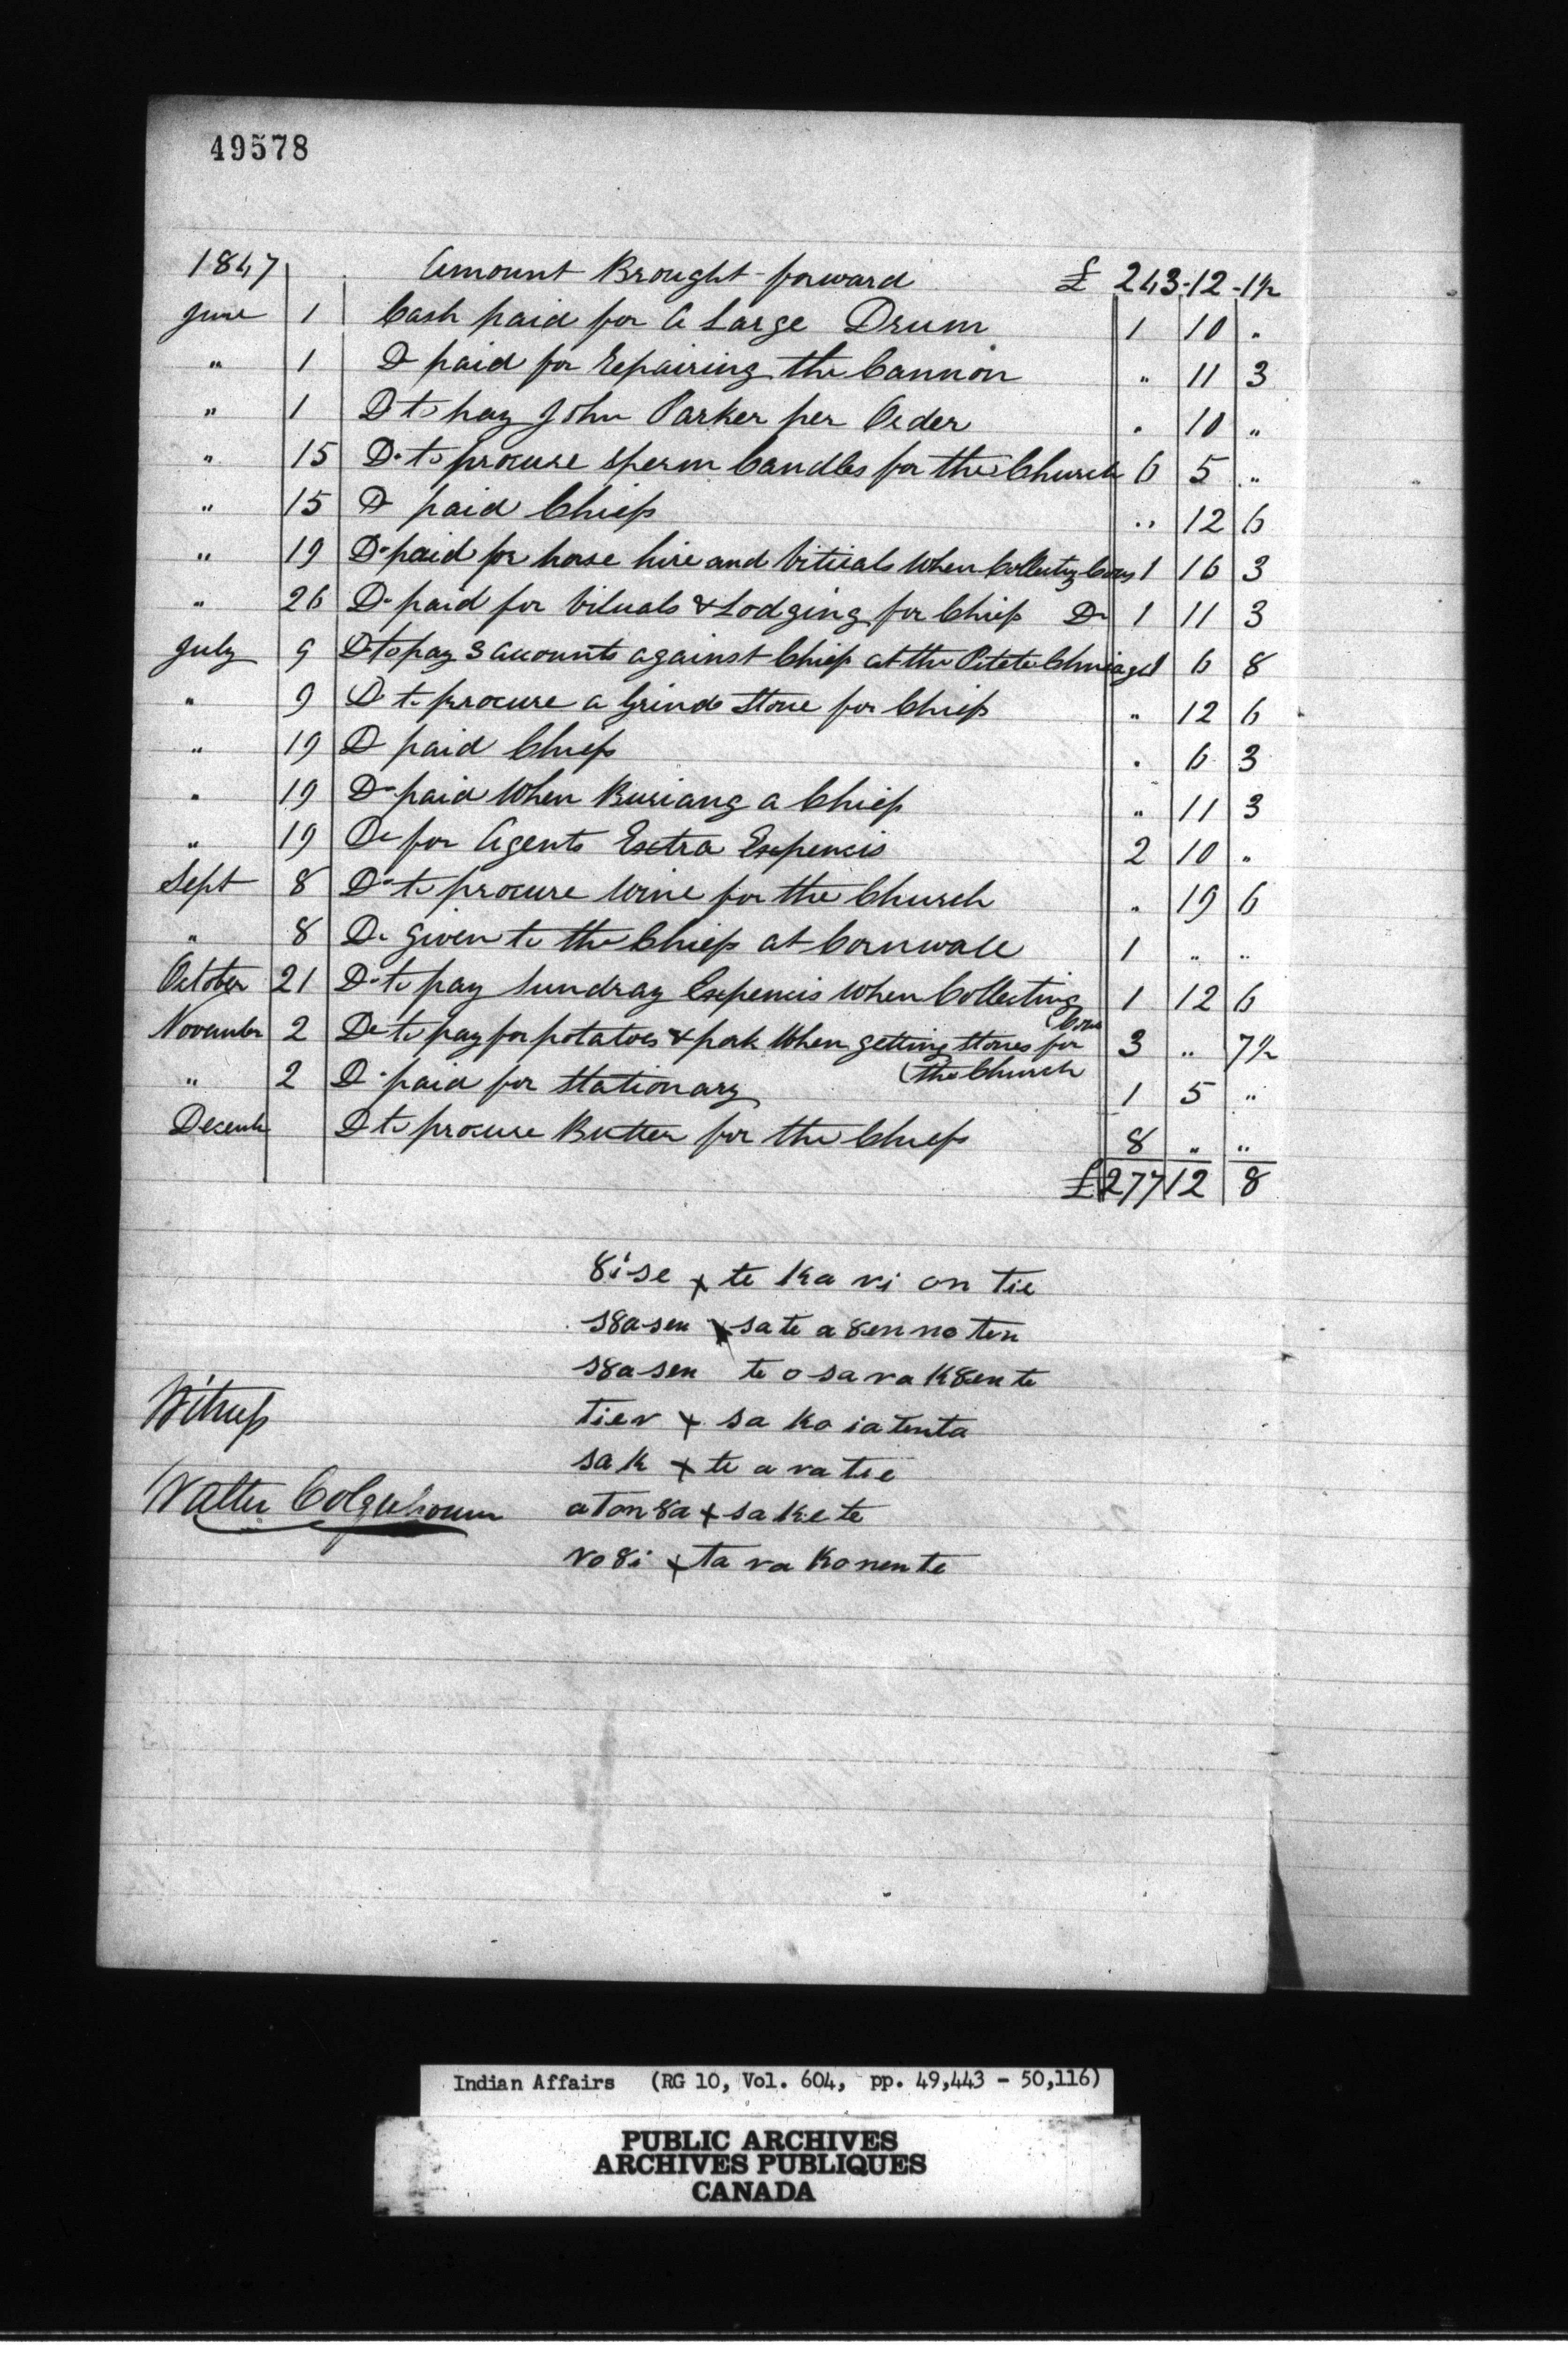 49578
1847 Amount Brought forward £ 243-12-1½
June 1 Cash paid for A Large Drum 1 10 "
" 1 Do paid for Repairing the Cannon " 11 3
" 1 Do to pay John Parker per Order " 10 "
" 15 Do to procure sperm Candles for the Church 6 5 "
" 15 Do paid Chiefs " 12 6
" 19 Do paid for horse hire and Vituals When Collecting Corn 1 16 3
" 26 Do paid for Vituals & Lodging for Chiefs Do 1 11 3
July 9 Do to pay 3 accounts against Chiefs at the Petete 1 6 8
" 9 Do to procure a Grind Stone for Chiefs " 12 6
" 19 Do paid Chiefs " 6 3
" 19 Do paid When Buriang a Chief " 11 3
" 19 Do for Agents Extra Expencis 2 10 "
Sept 8 Do to procure Wine for the Church " 19 6
" 8 Do given to the Chiefs at Cornwall 1 " "
October 21 Do to pay Sundray Expencis When Collecting 1 12 6
(Corn
November 2 Do to pay for potatoes & pork When getting Stones for 3 " 7½
(the Church
" 2 Do paid for Stationary 1 5 "
Decemb Do to procure Butter for the Chiefs 8 " "
£ 277 12 8
8ise x te ka ri on tie
s8a sen x sa te a 8en no ten
s8a sen te o sa ra k8en te
Witness
tier x sa ko ia tenta
sak x te a ra tie
Walter Colquhoun
aton8a x sa ke te
ro8i x ta ra ko nen te
Indian Affairs (RG 10, Vol. 604, pp. 49,443 - 50,116)
PUBLIC ARCHIVES
ARCHIVES PUBLIQUES
CANADA